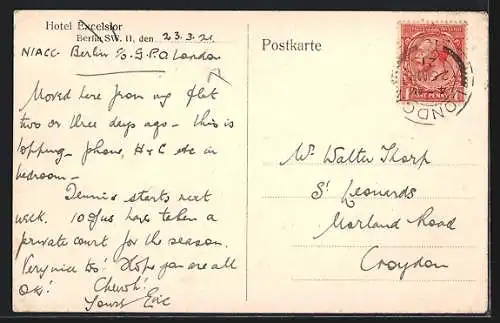 Hotel Excelsior
Berlin SW. 11, den 23.3.21
NIACC Berlin c/o G.P.O London
Moved here from my flat
two or three days ago - this is
topping - phone, H & C etc in
bedroom -
Tennis starts next
week. 10 of us have taken a
private court for the season.
Very nice too! Hope you are all
OK! Cheerh!
Yours Eric
Postkarte
Mr Walter Thorp
St Leonards
Morland Road
Croydon
ONE PENNY
LONDON